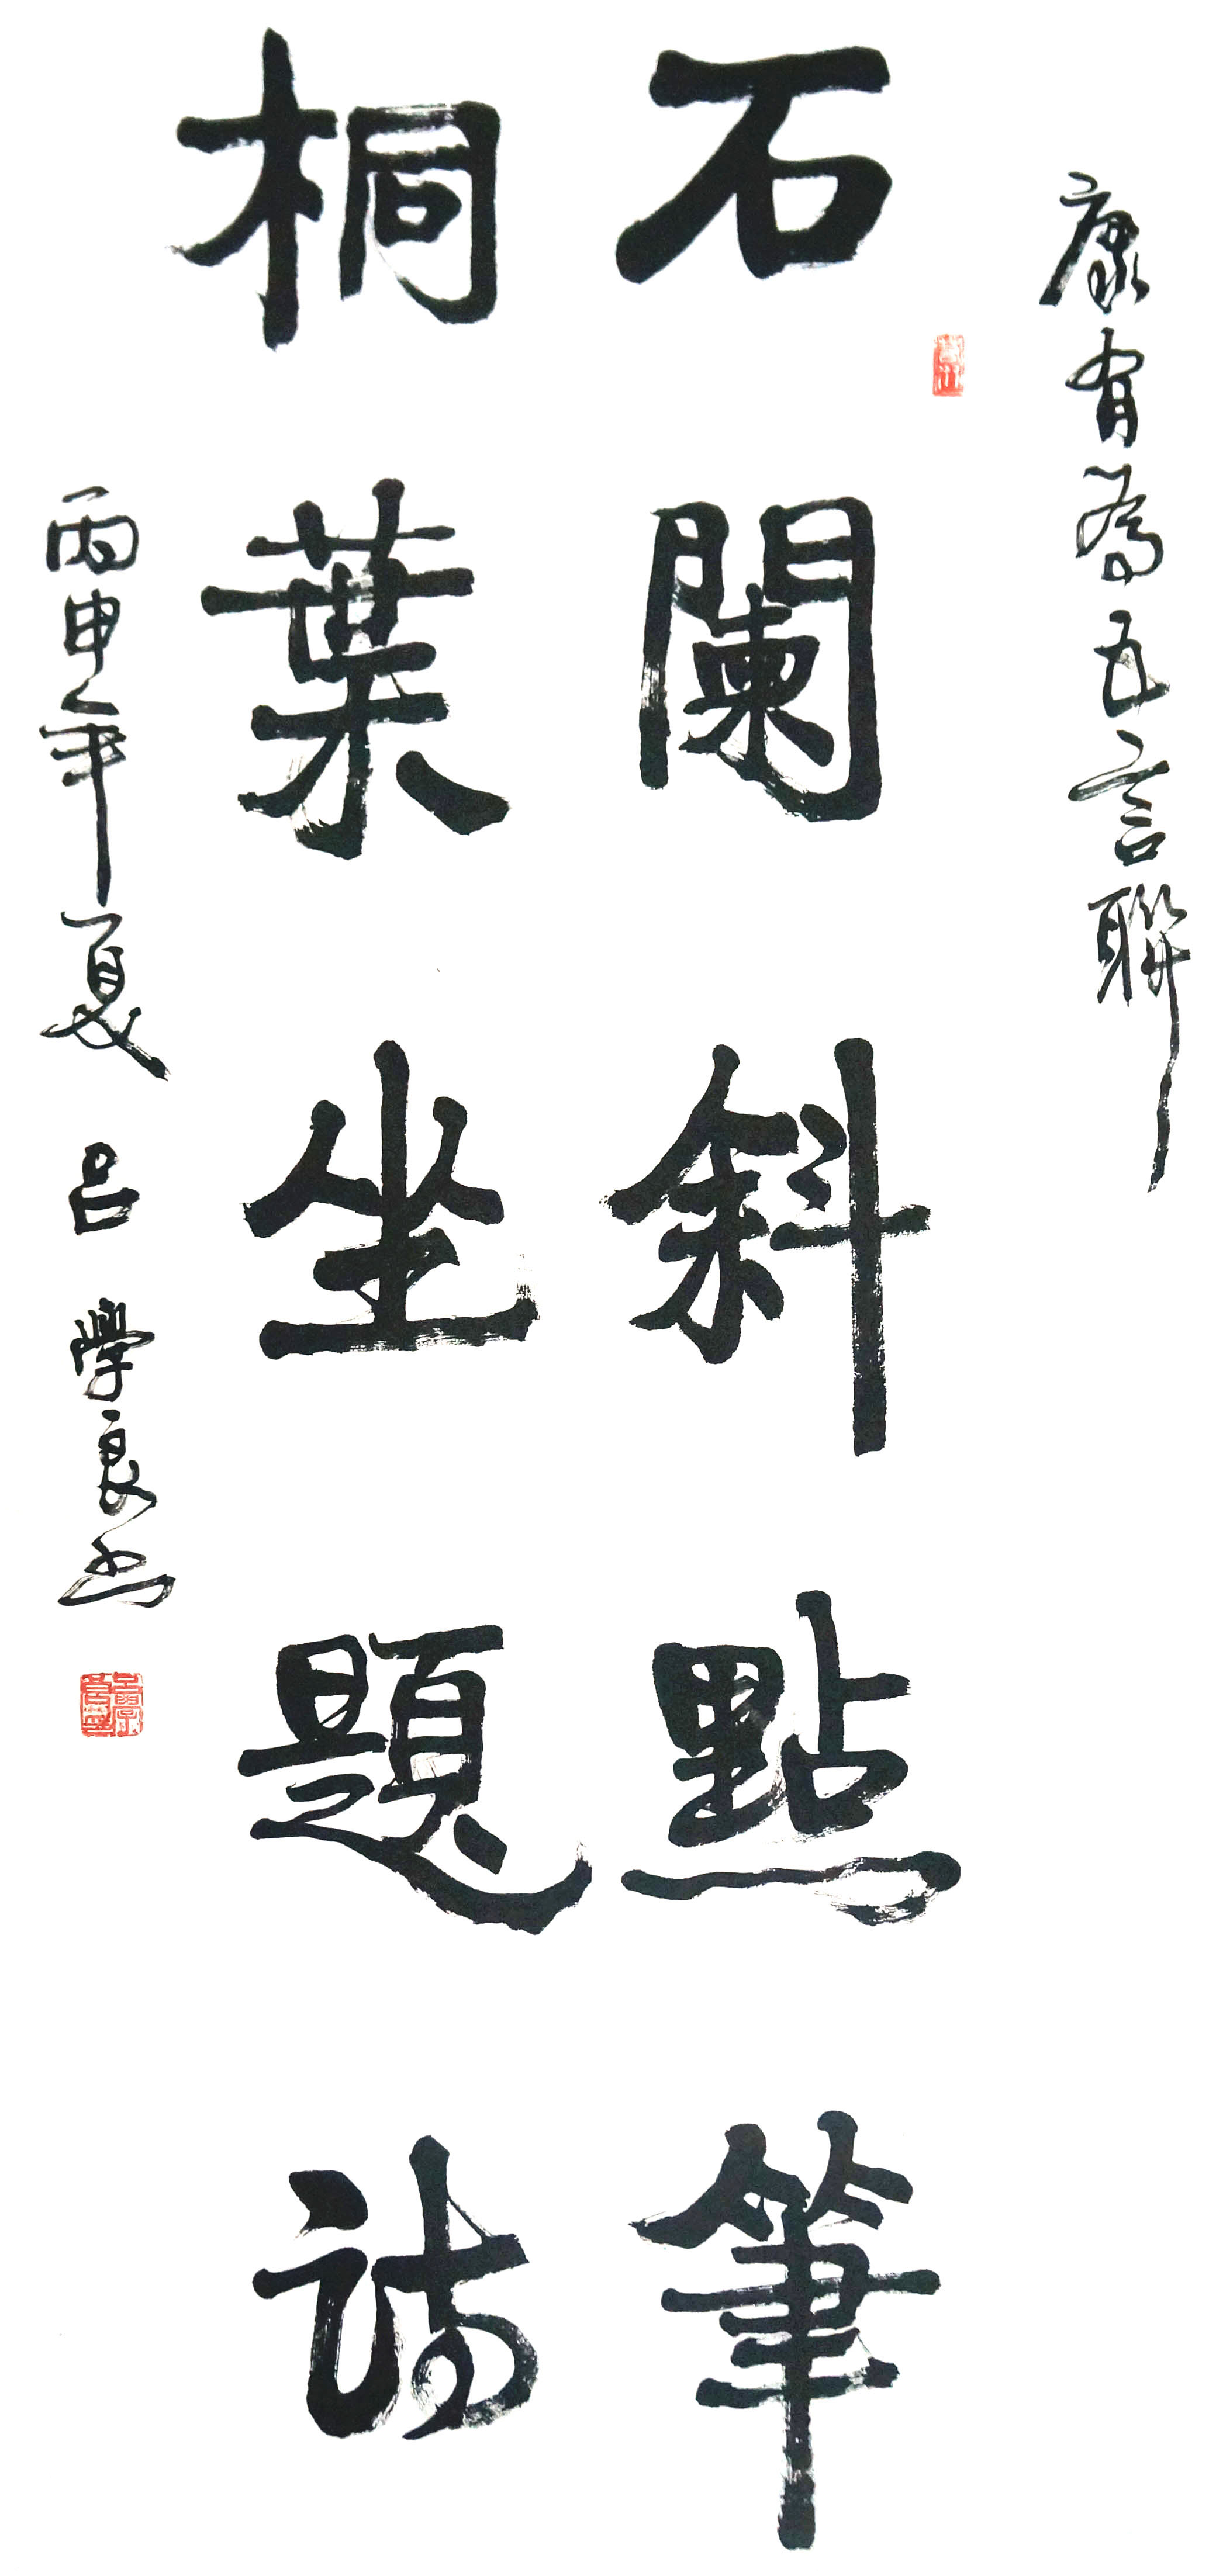 康有為五言聯
石闌斜點筆
桐葉坐題詩
丙申年夏 呂學良书